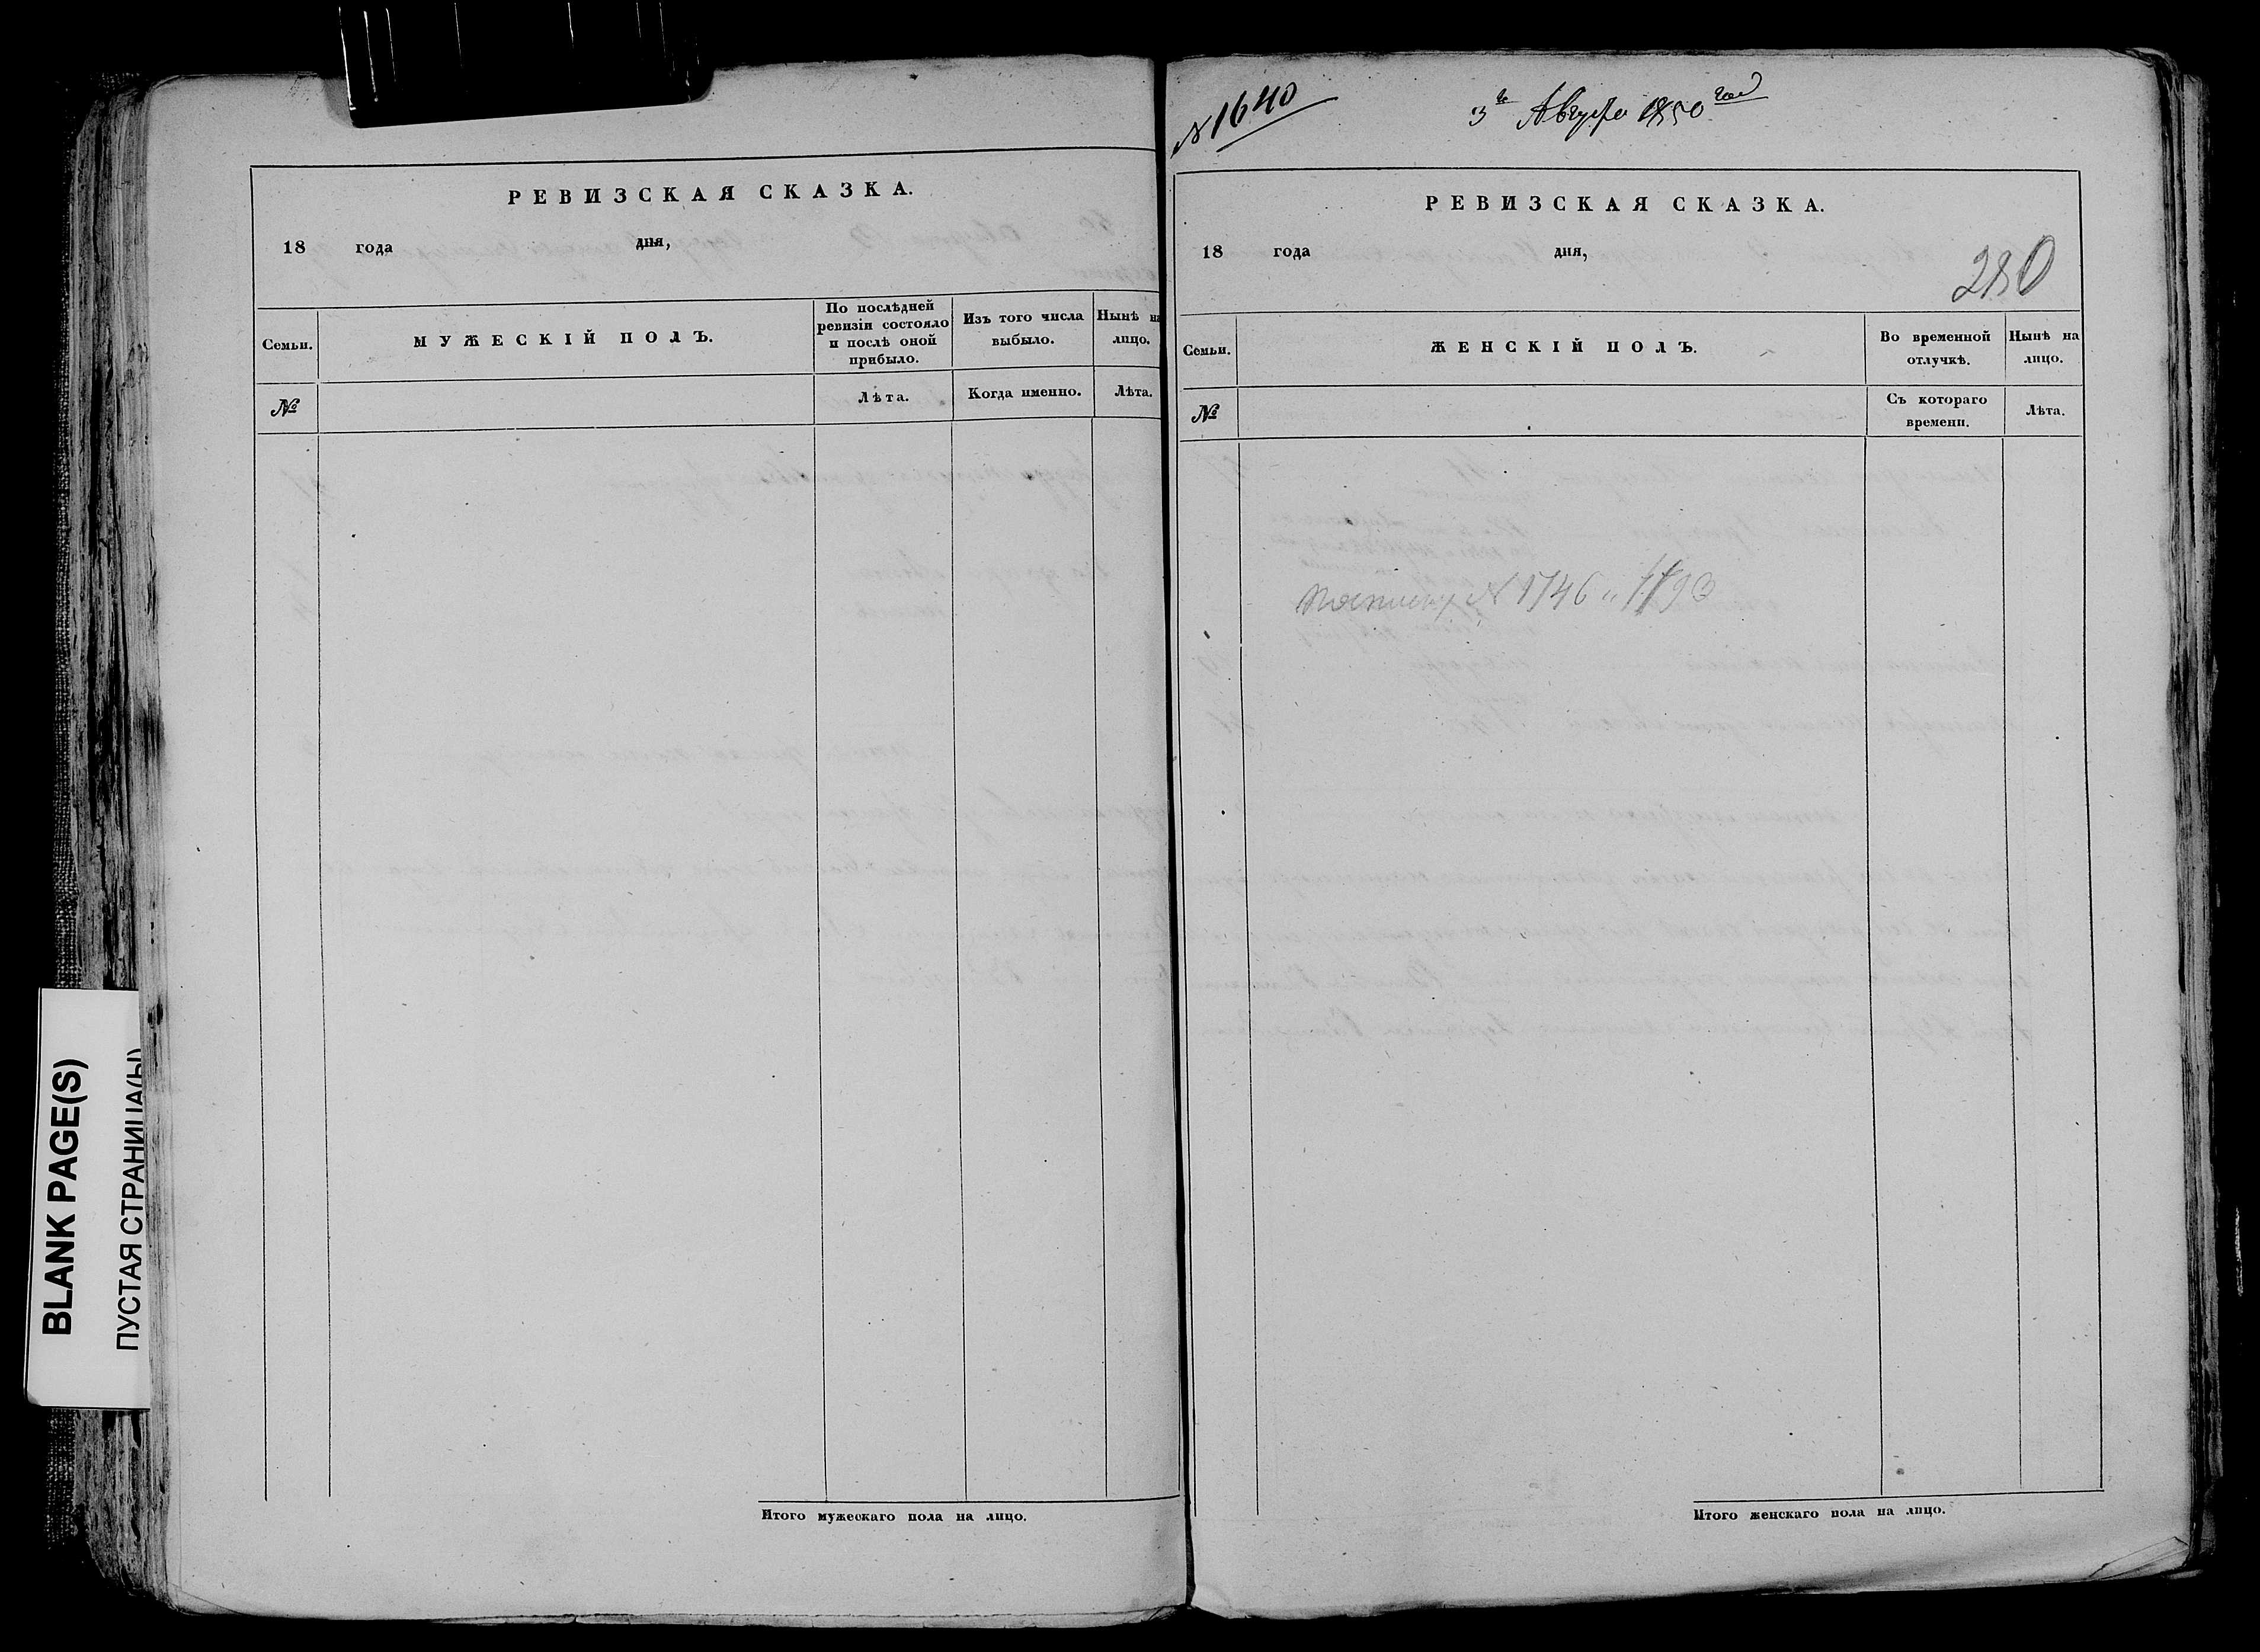 РЕВИЗСКАЯ СКАЗКА.
18 года дня,
Семьи.
МУЖЕСКІЙ ПОЛЪ.
По послѣдней ревизіи состояло и послѣ оной прибыло.
Изъ того числа выбыло.
Нынѣ на лицо.
№
Лѣта.
Когда именно.
Лѣта.
Итого мужескаго пола на лицо.
BLANK PAGE(S)
ПУСТАЯ СТРАНИЦА(Ы)
№ 1640
3го Августа 1850 года
РЕВИЗСКАЯ СКАЗКА.
18 года дня,
280
Семьи.
ЖЕНСКІЙ ПОЛЪ.
Во временной отлучкѣ.
Нынѣ на лицо.
№
Съ котораго времени.
Лѣта.
№ 1746
Итого женскаго пола на лицо.